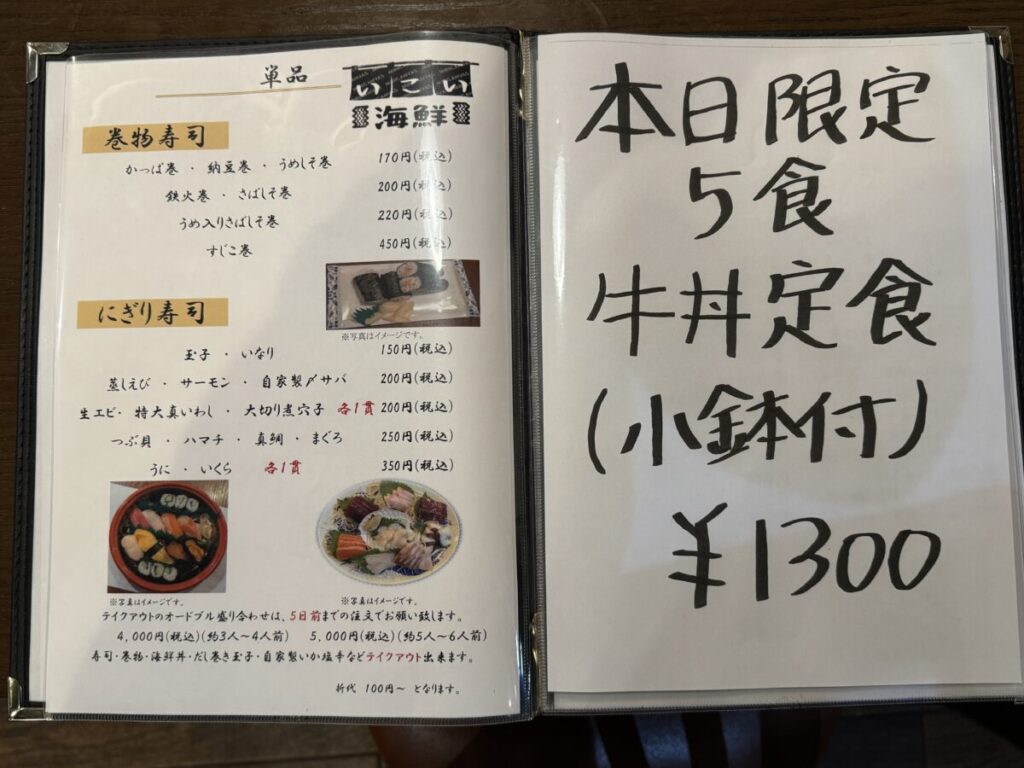 単品
いこい
海鮮
巻物寿司
かっぱ巻 ・ 納豆巻 ・ うめしそ巻 170円(税込)
鉄火巻 ・ さばしそ巻 200円(税込)
うめ入りさばしそ巻 220円(税込)
すじこ巻 450円(税込)
※写真はイメージです。
にぎり寿司
玉子 ・ いなり 150円(税込)
蒸しえび ・ サーモン ・ 自家製〆サバ 200円(税込)
生エビ・ 特大真いわし ・ 大切り煮穴子 各1貫 200円(税込)
つぶ貝 ・ ハマチ ・ 真鯛 ・ まぐろ 250円(税込)
うに ・ いくら 各1貫 350円(税込)
※写真はイメージです。 ※写真はイメージです。
テイクアウトのオードブル盛り合わせは、5日前までの注文でお願い致します。
4,000円(税込)(約3人~4人前) 5,000円(税込)(約5人~6人前)
寿司・巻物・海鮮丼・だし巻き玉子・自家製いか塩辛などテイクアウト出来ます。
折代 100円~ となります。
本日限定
5食
牛丼定食
(小鉢付)
¥1300